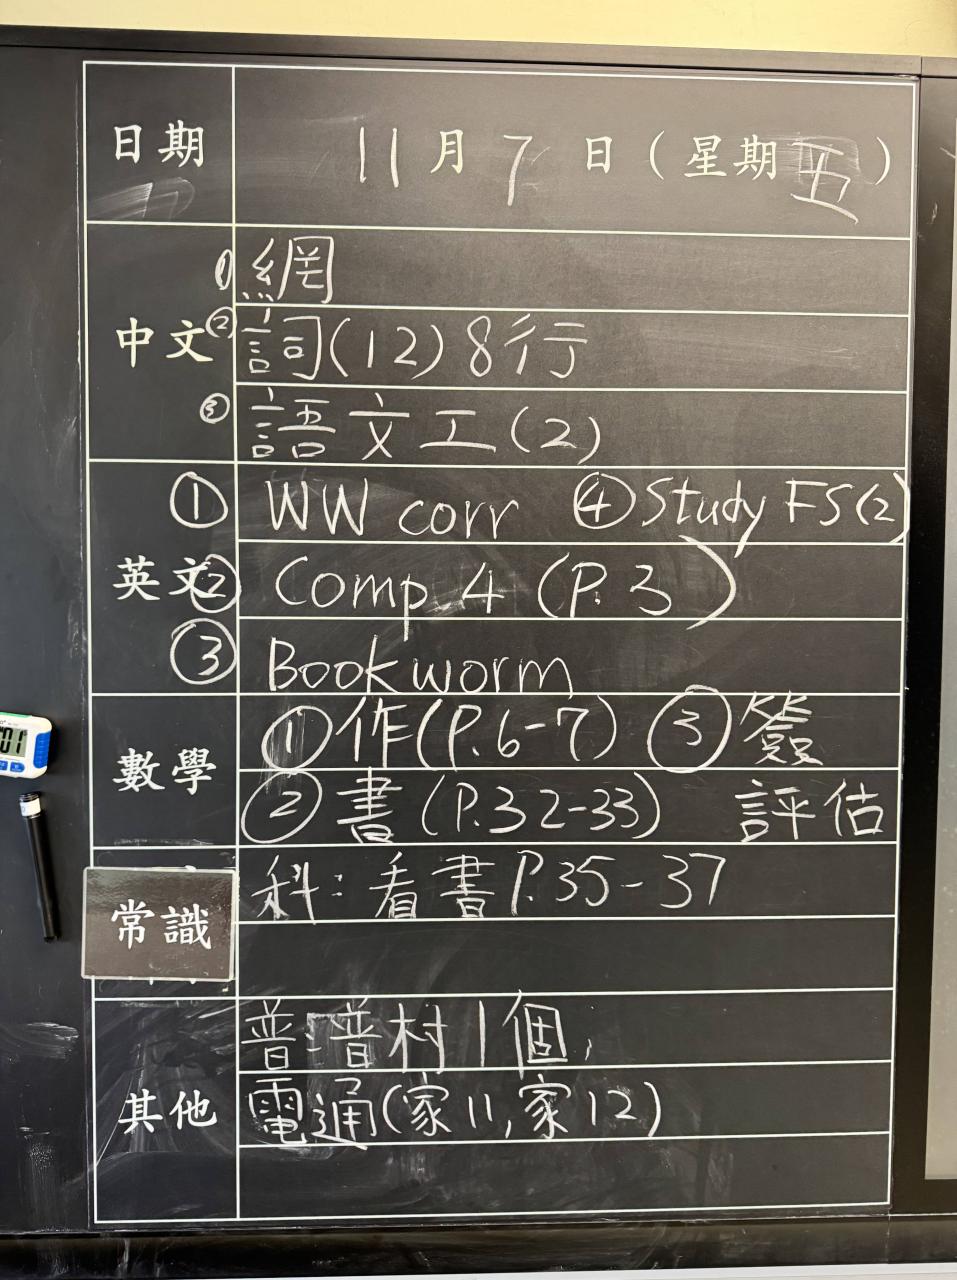 日期 11月7日(星期五)
中文 ①網
②詞(12)8行
③語文工(2)
英文 ① WW corr ④Study FS(2)
② Comp 4 (P.3)
③ Bookworm
數學 ①作(P.6-7) ③簽
②書(P.32-33) 評估
常識 科:看書P.35-37
其他 普:普村1個,
電通(家11,家12)
01